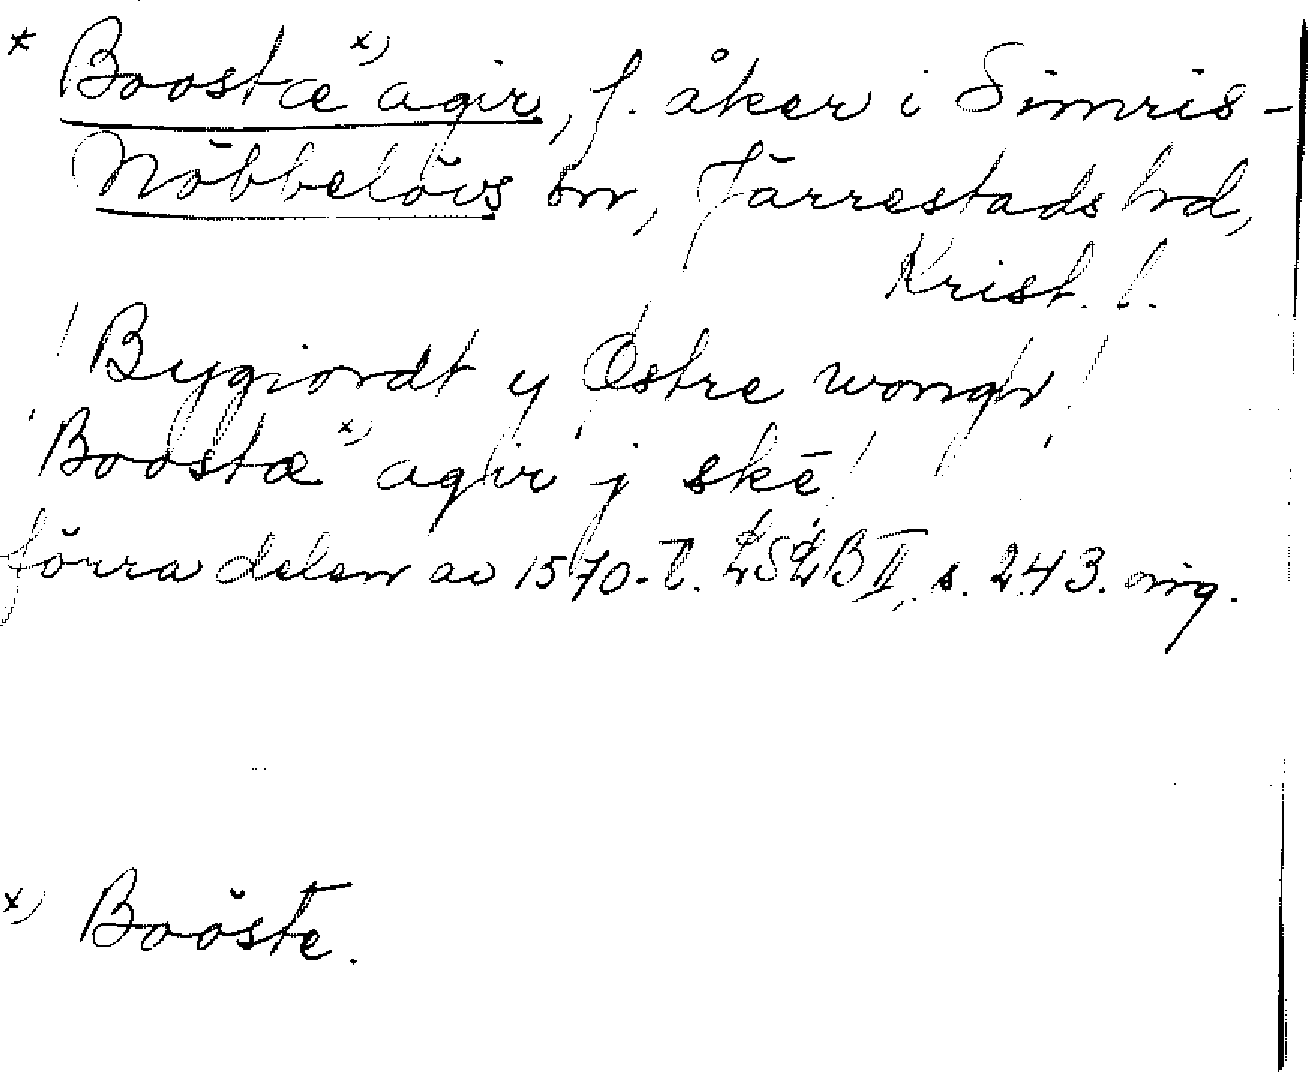 * Boostæ x) agir, f. åker i Simris-
Nöbbelövs sn, Järrestads hd,
Krist. l.
'Bygiordt y Østre wongh'
'Boostæ x) agir j skē'
förra delen av 1570-t. LSLB II, s. 243. orig.
x) Booste.